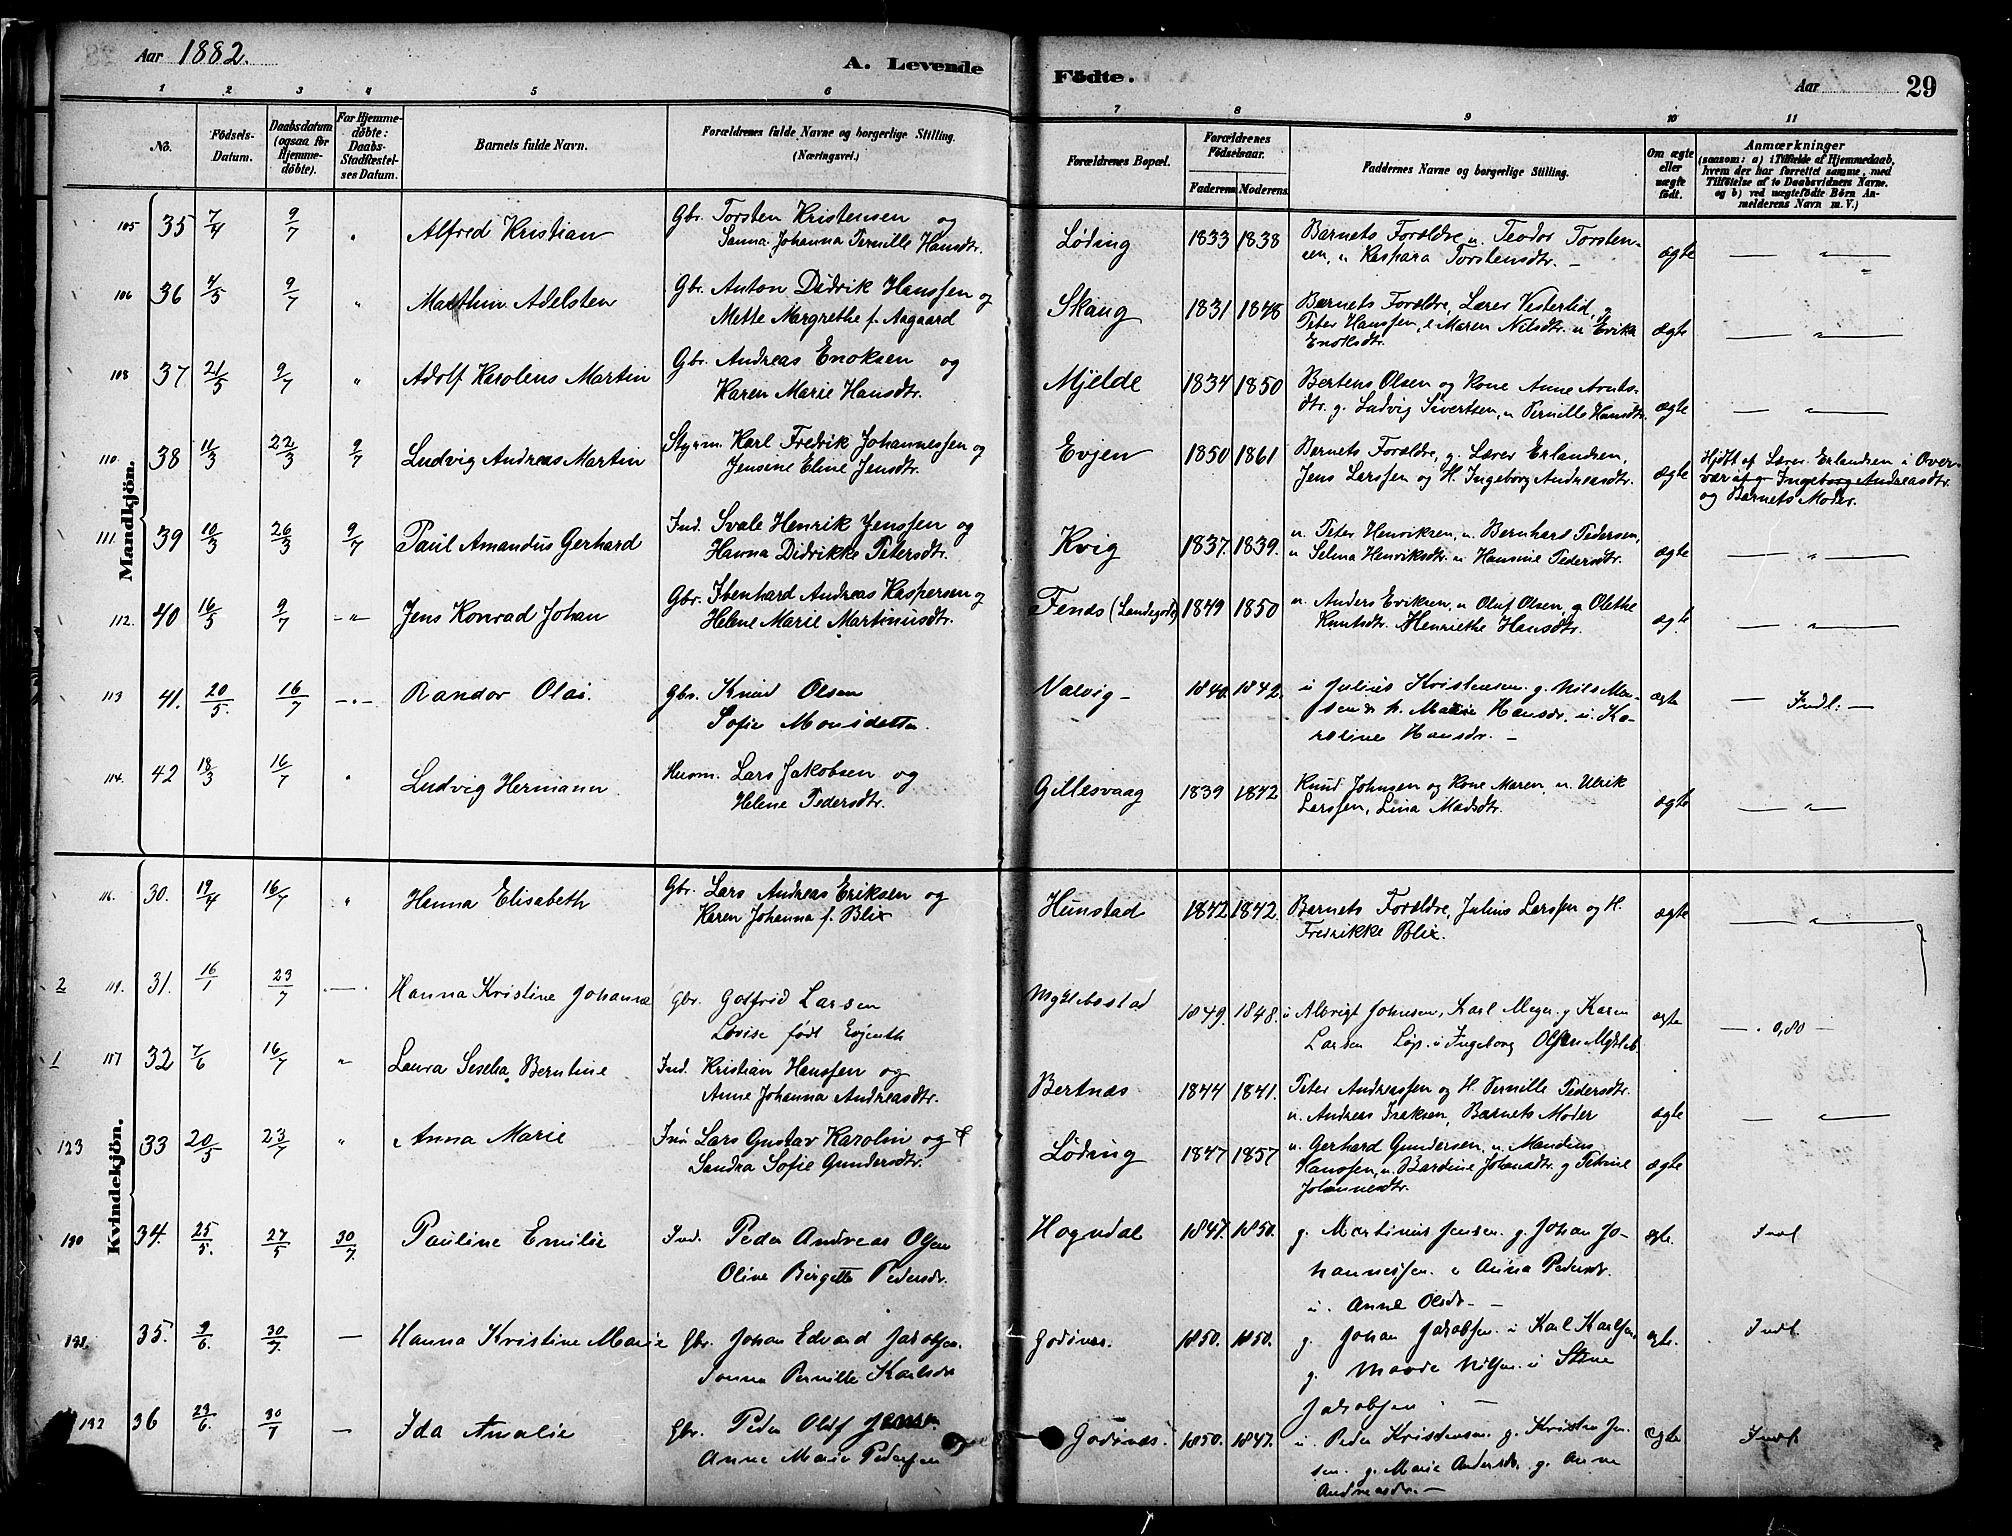 Aar 1882.
A. Levende
Födte.
Aar
29
1 2 3 4 5 6 7 8 9 10 11
No.
Födsels-Datum.
Daabsdatum (ogsaa for Hjemmedöbte).
For Hjemmedöbte: Daabs-Stadfæstelses Datum.
Barnets fulde Navn.
Forældrenes fulde Navne og borgerlige Stilling. (Næringsvei.)
Forældrenes Bopæl.
Forældrenes Födselsaar.
Faderens Moderens.
Faddernes Navne og borgerlige Stilling.
Om ægte eller uægte födt.
Anmærkninger
(saasom: a) i Tilfælde af Hjemmedaab, hvem der har forrettet samme, med Tilföielse af to Daabsvidners Navne. og b) ved uægtefödte Börn Anmelderens Navn m. V.)
Mandkjön.
105 35 7/4 9/7 " Alfred Kristian
Gbr. Torsten Kristensen og
Sanna Johanna Pernille Hansdtr.
Löding 1833 1838
Barnets Forældre, u. Teodor Torsten-
sen, u Kaspara Torstensdtr. —
ægte — " —
106 36 4/5 9/7 " Marthin Adelsten
Gbr. Anton Didrik Hanssen og
Mette Margrethe f. Aagaard
Skaug 1831 1848
Barnets Forældre, Lærer Vesterlid, g
Peter Hanssen, Maren Nilsdtr. u Erika
Enoksdtr.
ægte — " —
108 37 21/5 9/7 " Adolf Karolens Martin
Gbr. Andreas Enoksen og
Karen Marie Hansdtr.
Mjelde 1834 1850
Bertens Olsen og Kone Anne Arnts-
dtr. g. Ludvig Sivertsen, u Pernille Hansdtr.
ægte — " —
110. 38 11/3 22/3 9/7 Ludvig Andreas Martin
Styrm. Karl Fredrik Johannessen og
Jensine Eline Jensdtr.
Evjen 1850 1861
Barnets Forældre, g. Lærer Erlandsen,
Jens Larssen og H. Ingeborg Andreasdtr.
ægte
Hjdbt af Lærer Erlandsen i Over-
vær af g. Ingeborg Andreasdtr.
og Barnets Moder.
111. 39 10/3 26/3 9/7 Paul Amandus Gerhard
Ind. Svale Henrik Jenssen og
Hanna Didrikke Petersdtr.
Kvig 1837. 1839.
u. Peter Henriksen, u. Bernhard Pedersen,
u Selma Henriksdtr. u Hansine Pedersdtr.
ægte — " —
112. 40 16/5 9/7 — " — Jens Konrad Johan
Gbr. Ibenhard Andreas Kaspersen og
Helene Marie Martinusdtr.
Fenes (Landegode) 1849 1850
u. Anders Eriksen, u Oluf Olsen, g Olethe
Knutsdtr. Henriethe Hansdtr.
ægte — " —
113 41. 20/5. 16/7 — " — Randor Olai.
Gbr. Knud Olsen
Sofie Monsdatter
Valvig — 1840. 1842.
u Julius Kristensen. g. Nils Mon-
sen h. Marie Hansdr. u. Ka-
roline Hansdr. —
ægte — Indl: —
114. 42 18/3 16/7 " Ludvig Hermann.
Husm. Lars Jakobsen og
Helene Pedersdtr.
Gillesvaag 1839 1842
Knud Johnsen og Kone Maren, u. Ulrik
Larssen, Lina Madsdtr.
ægte — " —
Kvindekjön.
116. 30. 19/4 16/7 " Hanna Elisabeth
Gbr. Lars Andreas Eriksen og
Karen Johanna f. Blix
Hunstad 1842 1842.
Barnets Forældre, Julius Larssen og H.
Fredrikke Blix.
ægte — " —
2 119. 31. 16/1 23/7 — Hanna Kristine Johanna
Gbr. Gotfrid Larsen
Lovise født Evjenth
Myklebostad 1849. 1848.
u Albrigt Johnsen, Karl Meyer. g Karen
Larsen Löp. u Ingeborg Olsen Mykleb.
ægte — 0,80 —
1 117 32 7/6 16/7 " Laura Seselia Berntine
Ind. Kristian Hanssen og
Anne Johanna Andreasdtr.
Bertnæs 1844 1841.
Peter Andreassen og H. Pernille Pedersdtr.
u. Andreas Isaksen, Barnets Moder
ægte — " —
123 33 20/5 23/7 " Anna Marie
Ind Lars Gustav Karolin og
Sandra Sofie Gundersdtr.
Löding 1847 1857
u. Gerhard Gundersen, u. Mandius
Hanssen, u. Bardine Johansdtr. g Petrine
Johannesdtr.
ægte
130 34. 25/5. 27/5 30/7. Pauline Emilie
Ind. Peder Andreas Olsen
Oline Birgitte Pedersdr.
Hogndal 1847. 1850.
g. Martinus Jensen. g. Johan Jo-
hannessen. u Anna Pedersdr.
u. Anne Olsdr. —
ægte. Indl
131. 35. 9/6. 30/7. — Hanna Kristine Marie
Gbr. Johan Edvard Jakobsen.
Janna Pernille Karlsdr
Godönes. 1850. 1850.
g. Johan Jakobsen. u Karl Karlsen
g. Nilsen. u Stine
Jakobsen. —
ægte. Indl
132 36 23/6. 30/7 — Ida Amalie
Gbr. Peder Oluf Jensen
Anne Marie Pedersen
Godönes. 1850. 1847.
u. Peder Kristensen. g. Kristen Jen-
sen. g. Marie Andersdr. g. Anne
Andreasdr. —
Ægte Indl.